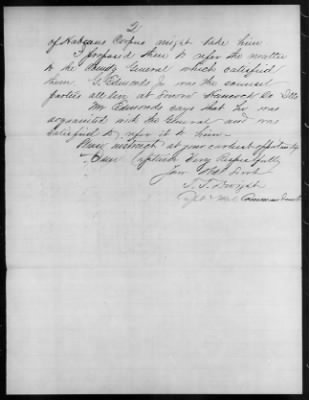 2/
of Habeas Corpus might take him
I proposed then to refer the matter
to the General which satisfied
them G. Edmonds Jr was the counsel
parties all live at Hancock Co Ills
Mr Edmonds says that he was
acquainted with the General and was
satisfied to refer it to him -
Please instruct at your earliest opportunity
I am Captain Very Respectfully
Your Obt Servt